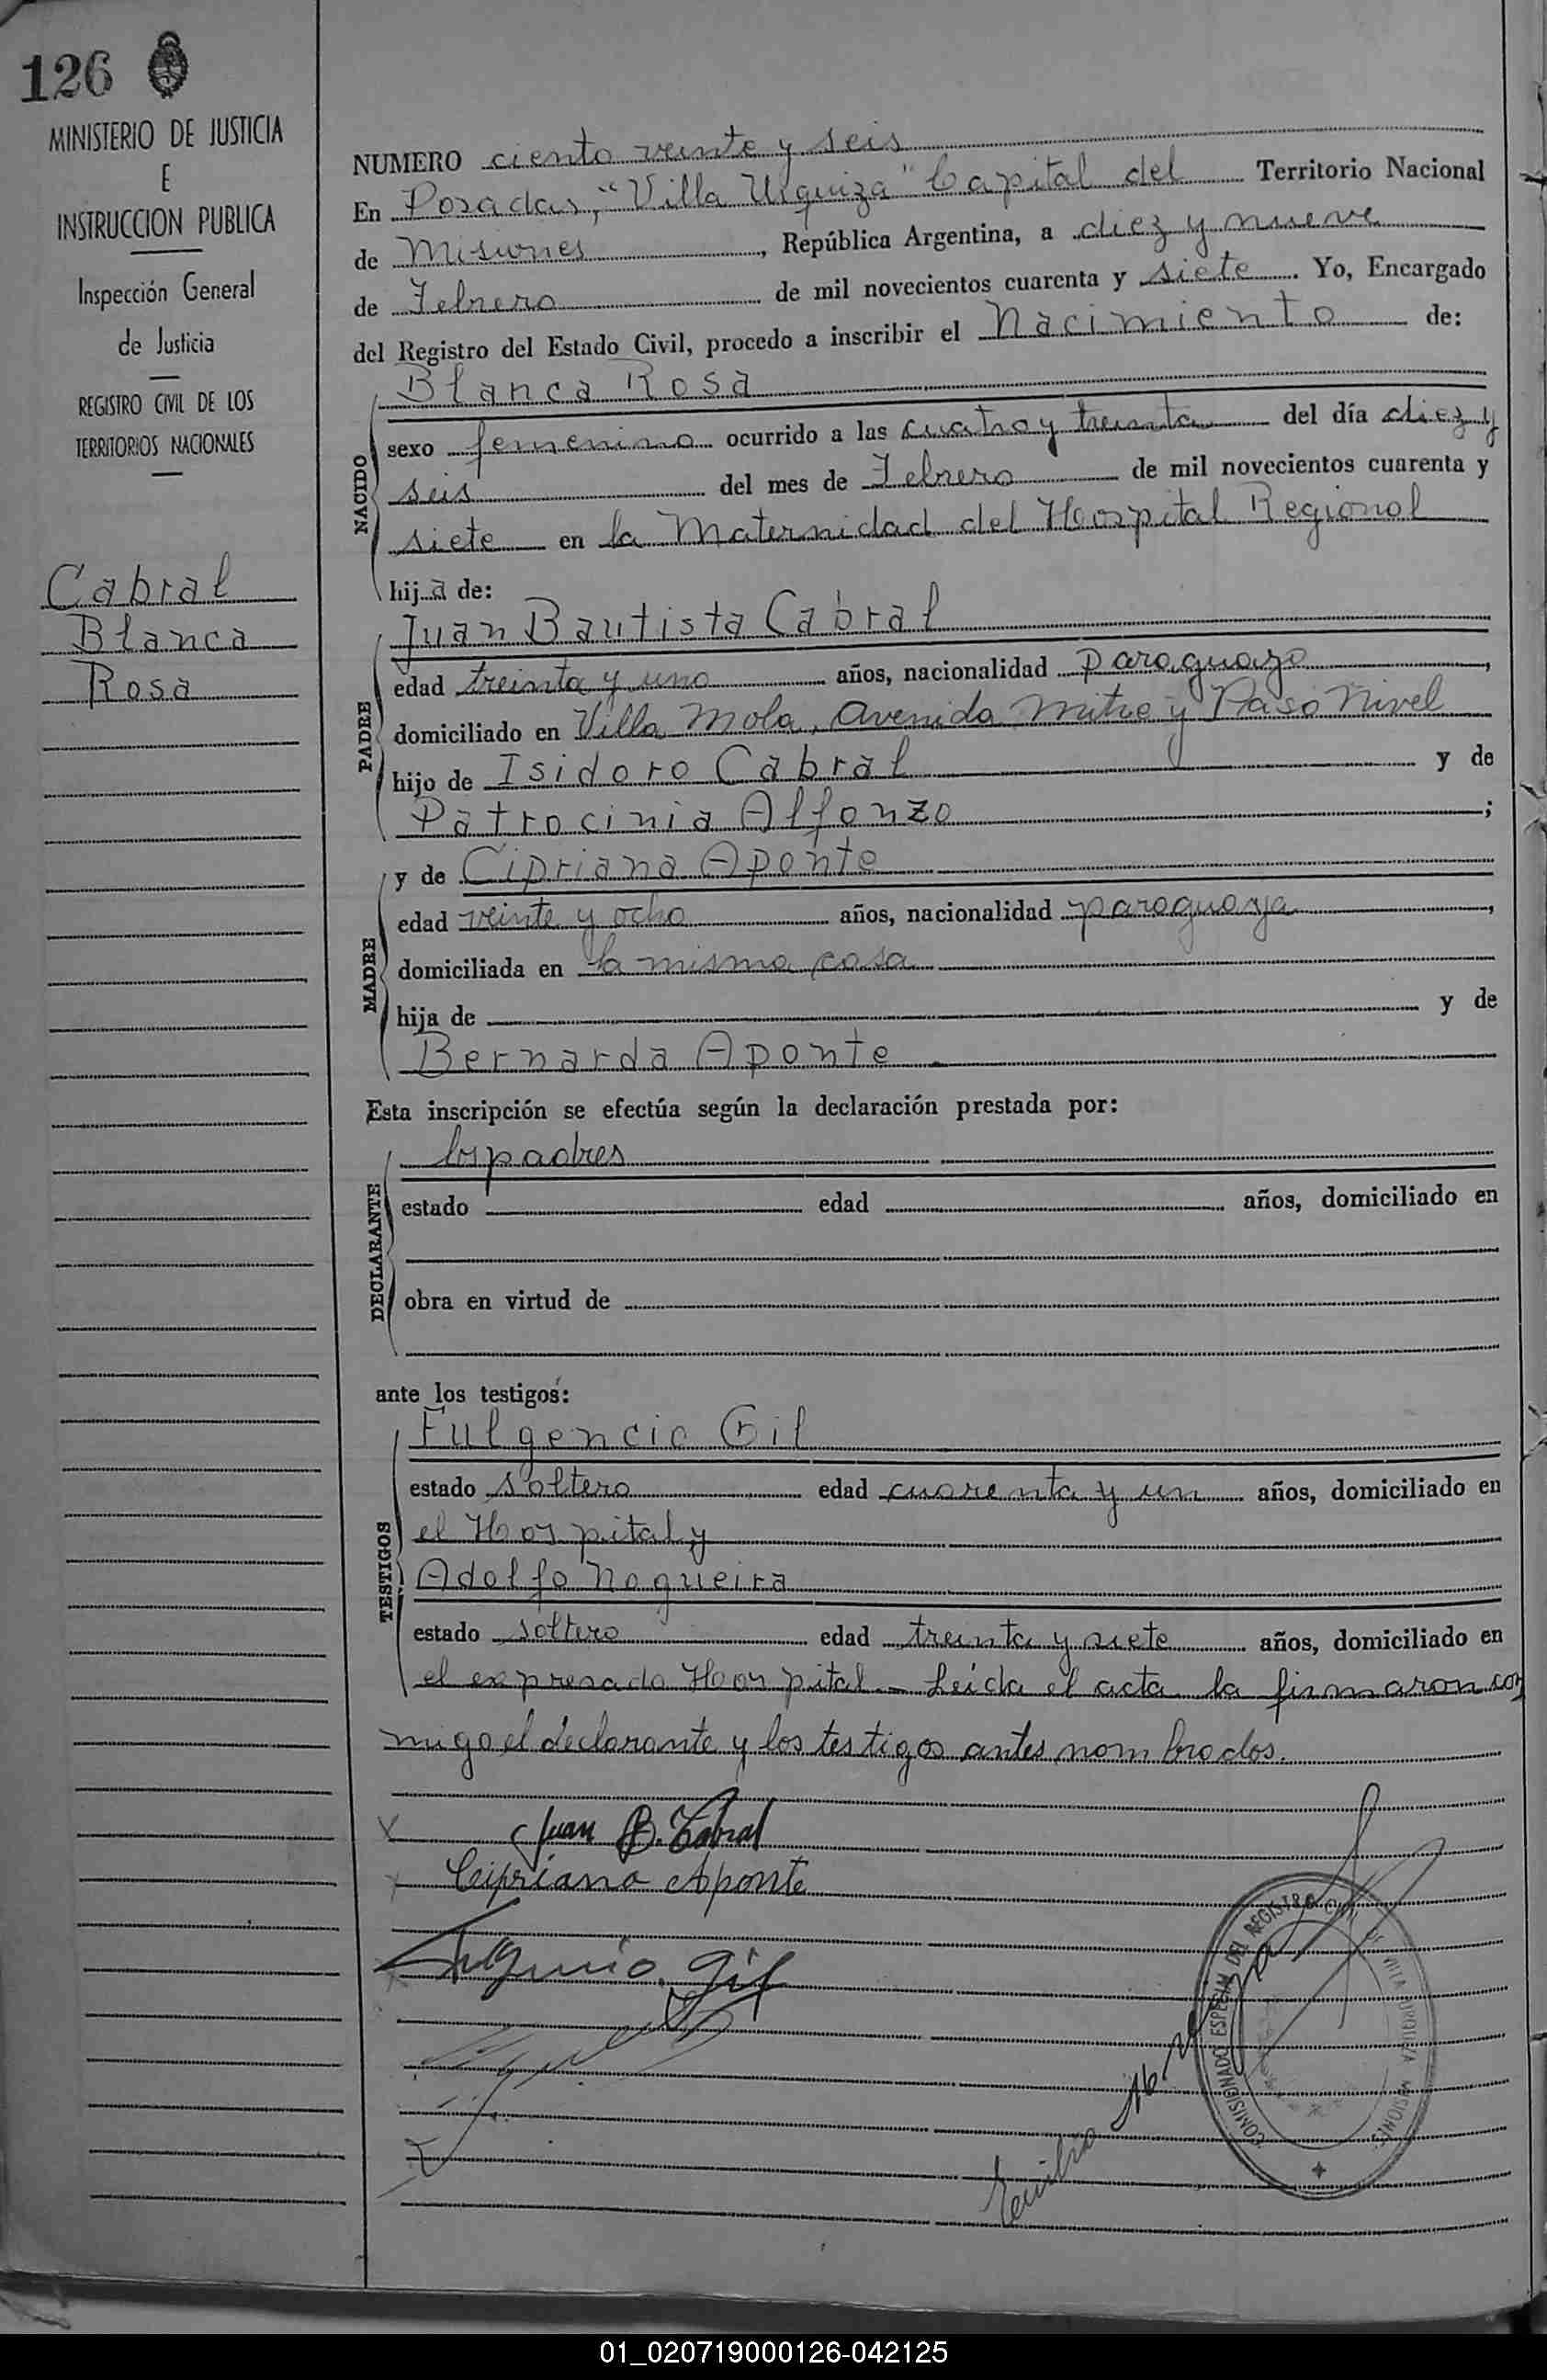 126
MINISTERIO DE JUSTICIA
E
INSTRUCCION PUBLICA
Inspección General
de Justicia
REGISTRO CIVIL DE LOS
TERRITORIOS NACIONALES
Cabral
Blanca
Rosa
NUMERO ciento veinte y seis
En Posadas, "Villa Urquiza" Capital del Territorio Nacional
de Misiones, República Argentina, a diez y nueve
de Febrero de mil novecientos cuarenta y siete. Yo, Encargado
del Registro del Estado Civil, procedo a inscribir el Nacimiento de:
NACIDO
Blanca Rosa
sexo femenino ocurrido a las cuatro y treinta del día diez y
seis del mes de Febrero de mil novecientos cuarenta y
siete en la Maternidad del Hospital Regional
hija de:
PADRE
Juan Bautista Cabral
edad treinta y uno años, nacionalidad paraguayo,
domiciliado en Villa Mola, Avenida Mitre y Paso Nivel
hijo de Isidoro Cabral y de
Patrocinia Alfonzo;
MADRE
y de Cipriana Aponte
edad veinte y ocho años, nacionalidad paraguaya,
domiciliada en la misma casa
hija de y de
Bernarda Aponte
Esta inscripción se efectúa según la declaración prestada por:
DECLARANTE
los padres
estado edad años, domiciliado en
obra en virtud de
ante los testigos:
TESTIGOS
Fulgencio Gil
estado soltero edad cuarenta y un años, domiciliado en
el Hospital y
Adolfo Nogueira
estado soltero edad treinta y siete años, domiciliado en
el expresado Hospital.- Leída el acta la firmaron con
migo el declarante y los testigos antes nombrados.
Juan B. Cabral
Cipriana Aponte
Fulgencio Gil
Emilio
COMISIONADO ESPECIAL DEL REGISTRO CIVIL DE VILLA URQUIZA MISIONES
01_020719000126-042125